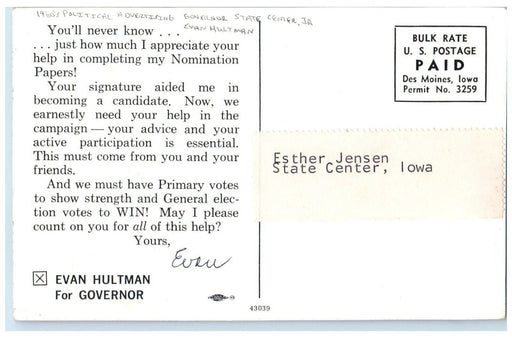 1960's POLITICAL ADVERTISING GOVERNOR STATE CENTER, IA
EVAN HULTMAN
You'll never know . . .
. . . just how much I appreciate your
help in completing my Nomination
Papers!
Your signature aided me in
becoming a candidate. Now, we
earnestly need your help in the
campaign — your advice and your
active participation is essential.
This must come from you and your
friends.
And we must have Primary votes
to show strength and General elec-
tion votes to WIN! May I please
count on you for all of this help?
Yours,
Evan
☒ EVAN HULTMAN
For GOVERNOR
43039
BULK RATE
U. S. POSTAGE
PAID
Des Moines, Iowa
Permit No. 3259
Esther Jensen
State Center, Iowa